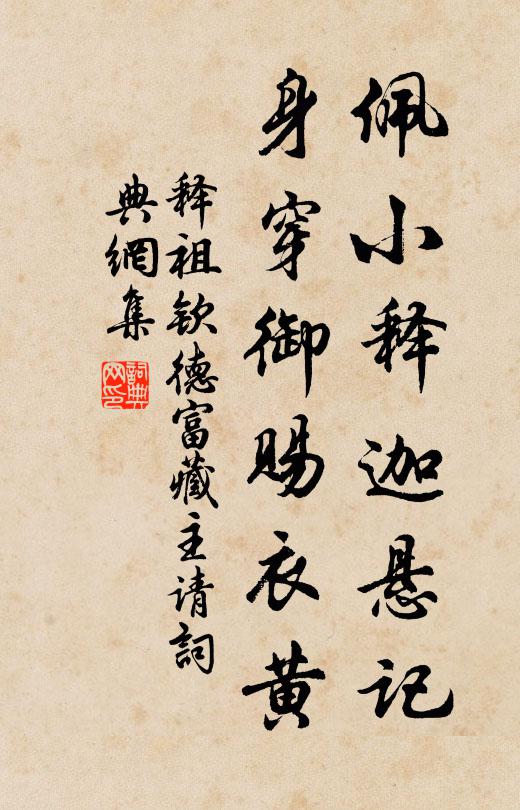 佩小释迦悬记
身穿御赐衣黄
释祖钦德富藏主请詞
典網集
詞典网印